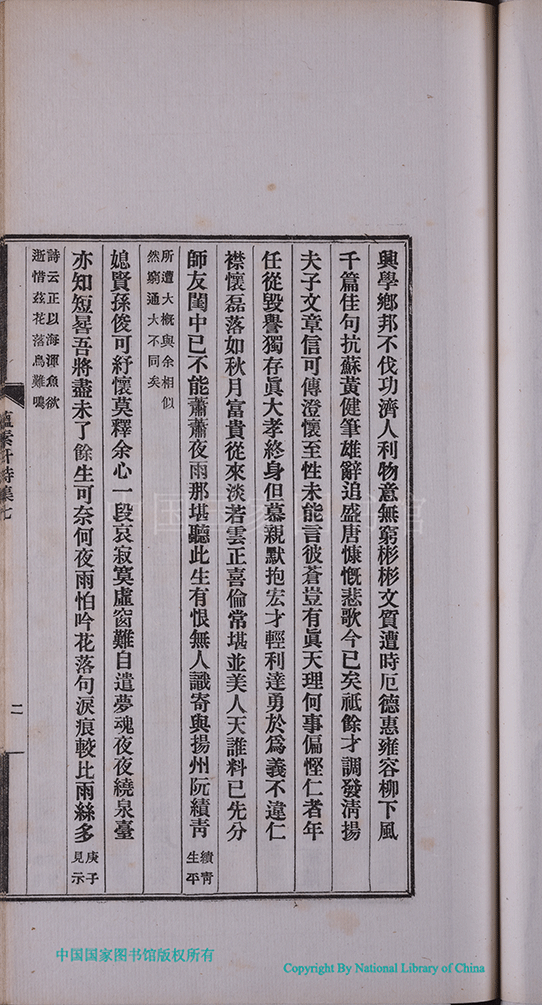 興學鄉邦不伐功濟人利物意無窮彬彬文質遭時厄德惠雍容柳下風
千篇佳句抗蘇黃健筆雄辭追盛唐慷慨悲歌今已矣祗餘才調發淸揚
夫子文章信可傳澄懷至性未能言彼蒼豈有眞天理何事偏慳仁者年
任從毀譽獨存眞大孝終身但慕親默抱宏才輕利達勇於爲義不違仁
襟懷磊落如秋月富貴從來淡若雲正喜倫常堪並美人天誰料已先分
師友閨中已不能蕭蕭夜雨那堪聽此生有恨無人識寄與揚州阮績靑
績靑
生平
所遭大槪與余相似
然窮通大不同矣
媳賢孫俊可紓懷莫釋余心一段哀寂寞虛窗難自遣夢魂夜夜繞泉臺
亦知短晷吾將盡未了餘生可奈何夜雨怕吟花落句淚痕較比雨絲多
庚子
見示
詩云正以海渾魚欲
逝惜茲花落鳥難鳴
詩集七
二
中国国家图书馆版权所有
Copyright By National Library of China